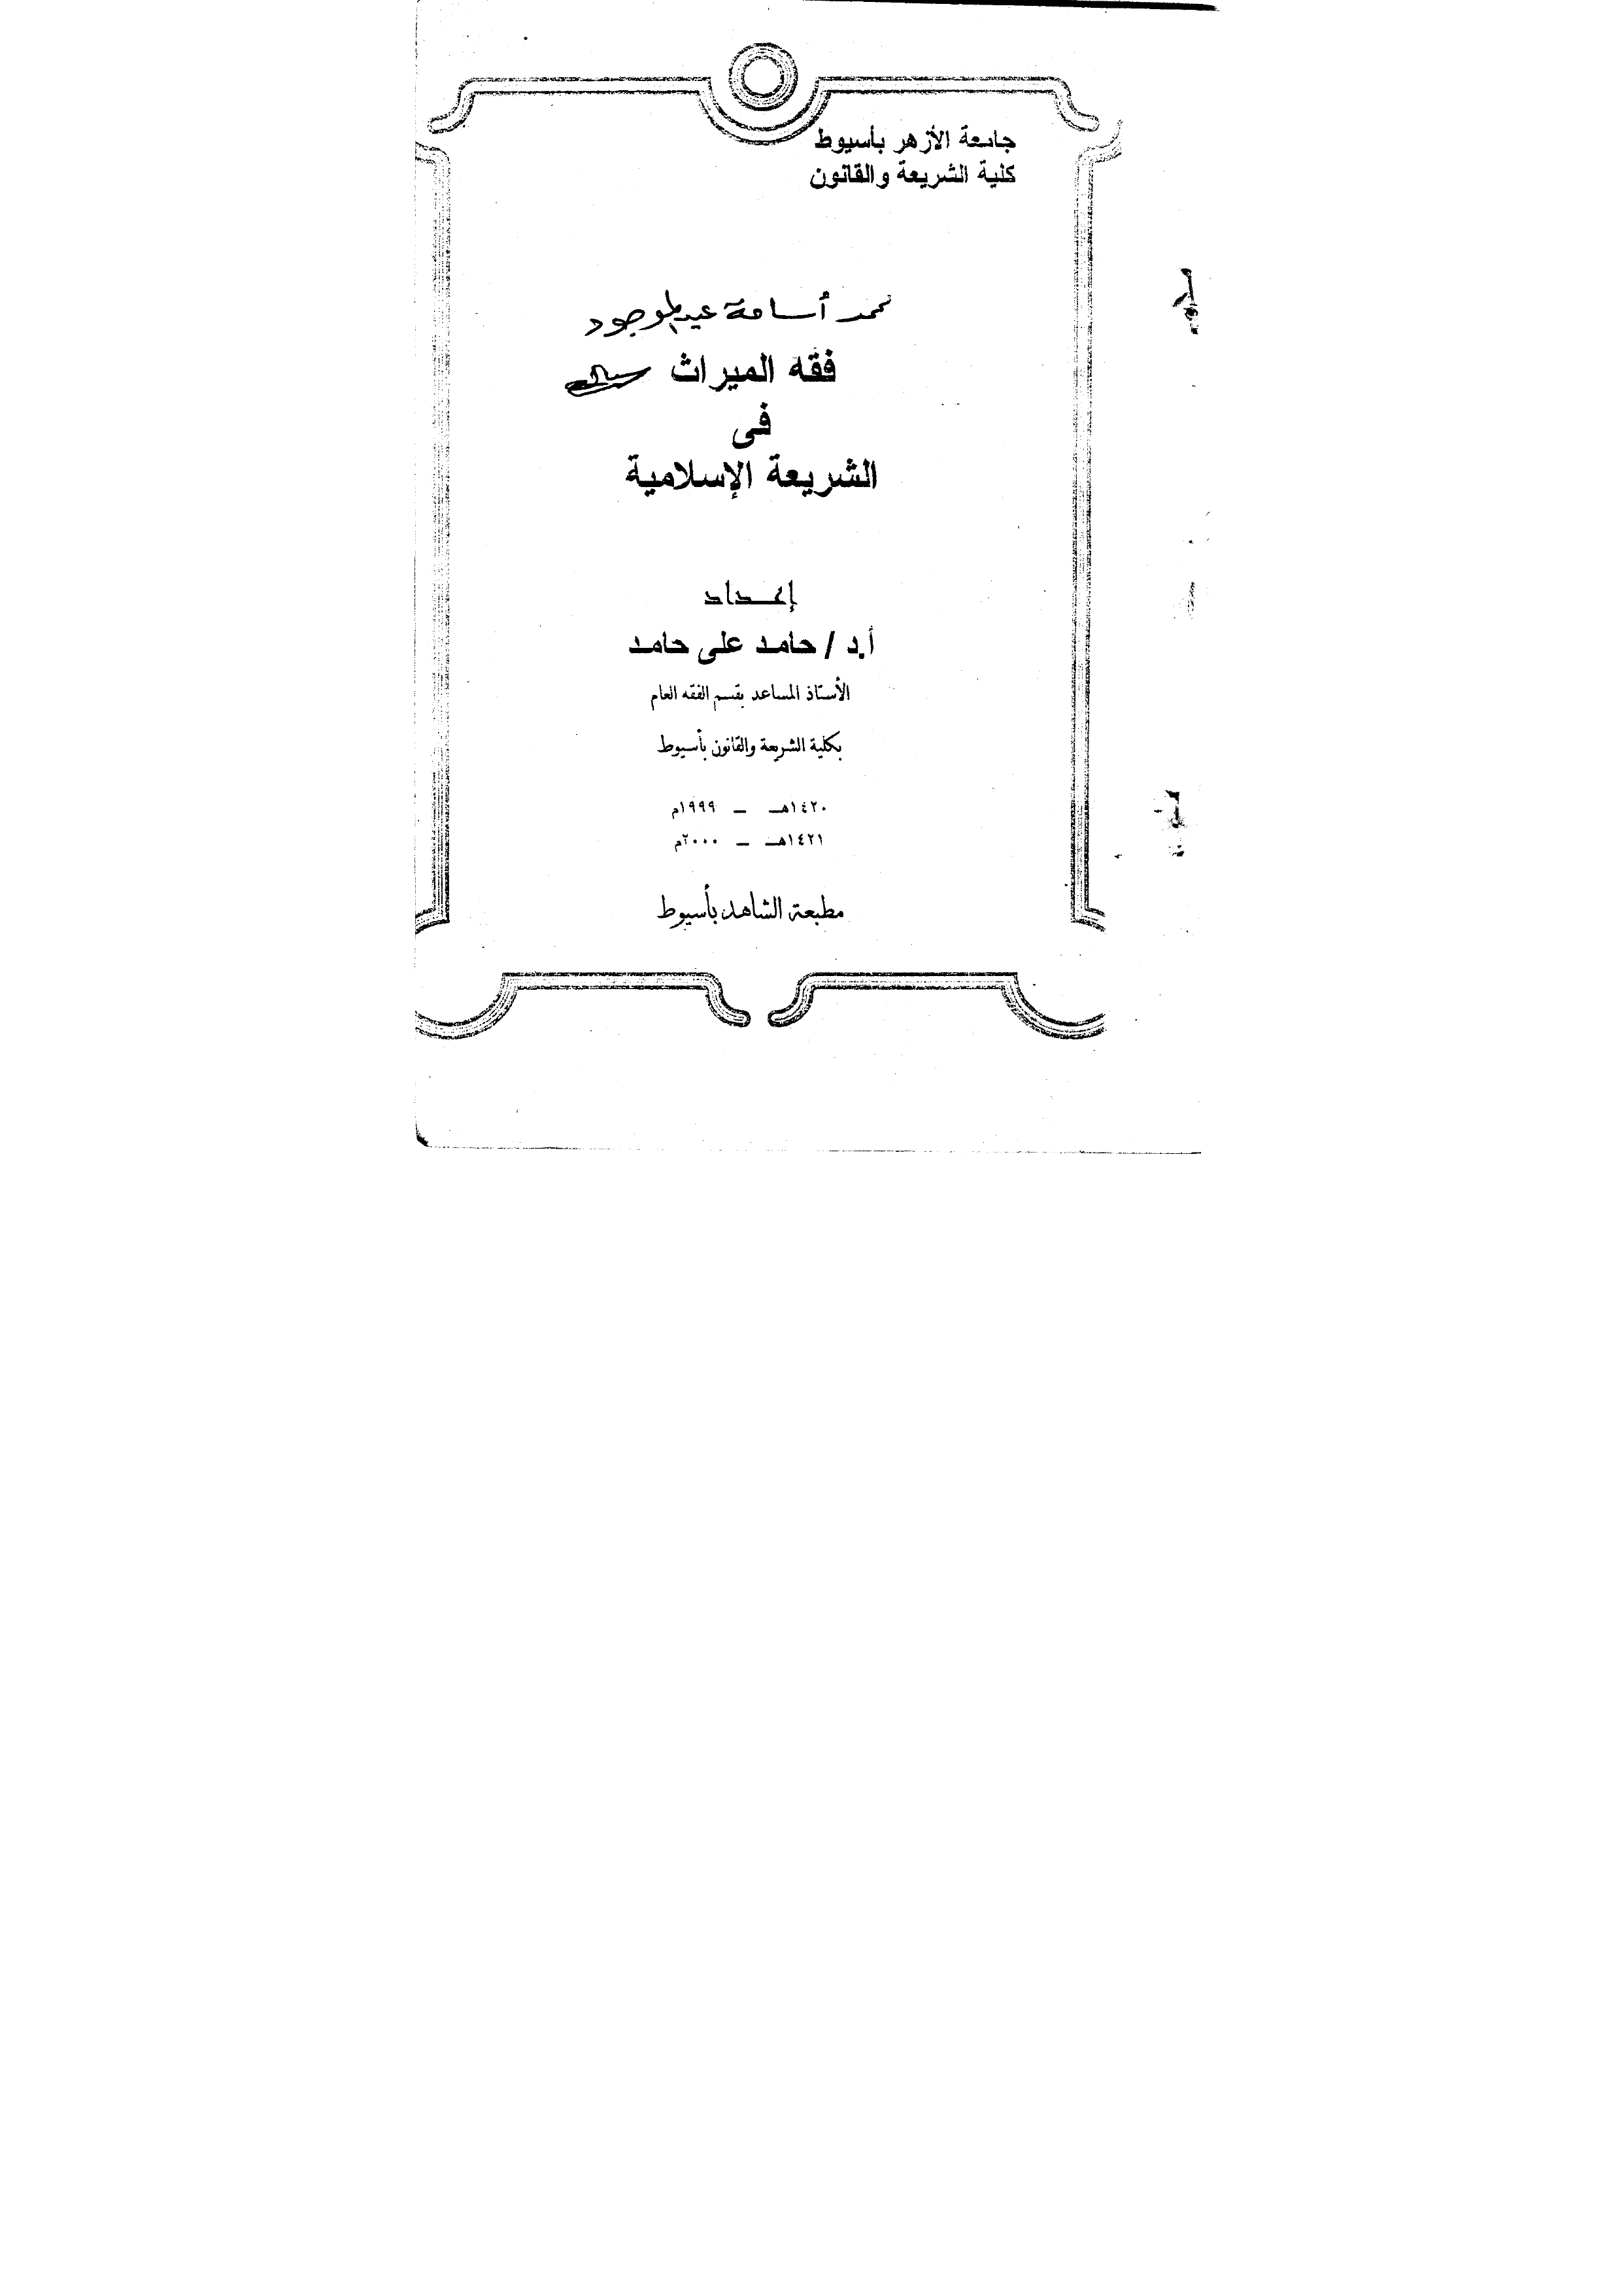 جامعة الأزهر بأسيوط
كلية الشريعة والقانون
محمد أسامة عبدالموجود
فقه الميراث
فى
الشريعة الإسلامية
إعداد
أ.د / حامد على حامد
الأستاذ المساعد بقسم الفقه العام
بكلية الشريعة والقانون بأسيوط
١٤٢٠هـ – ١٩٩٩م
١٤٢١هـ – ٢٠٠٠م
مطبعة الشاهد بأسيوط